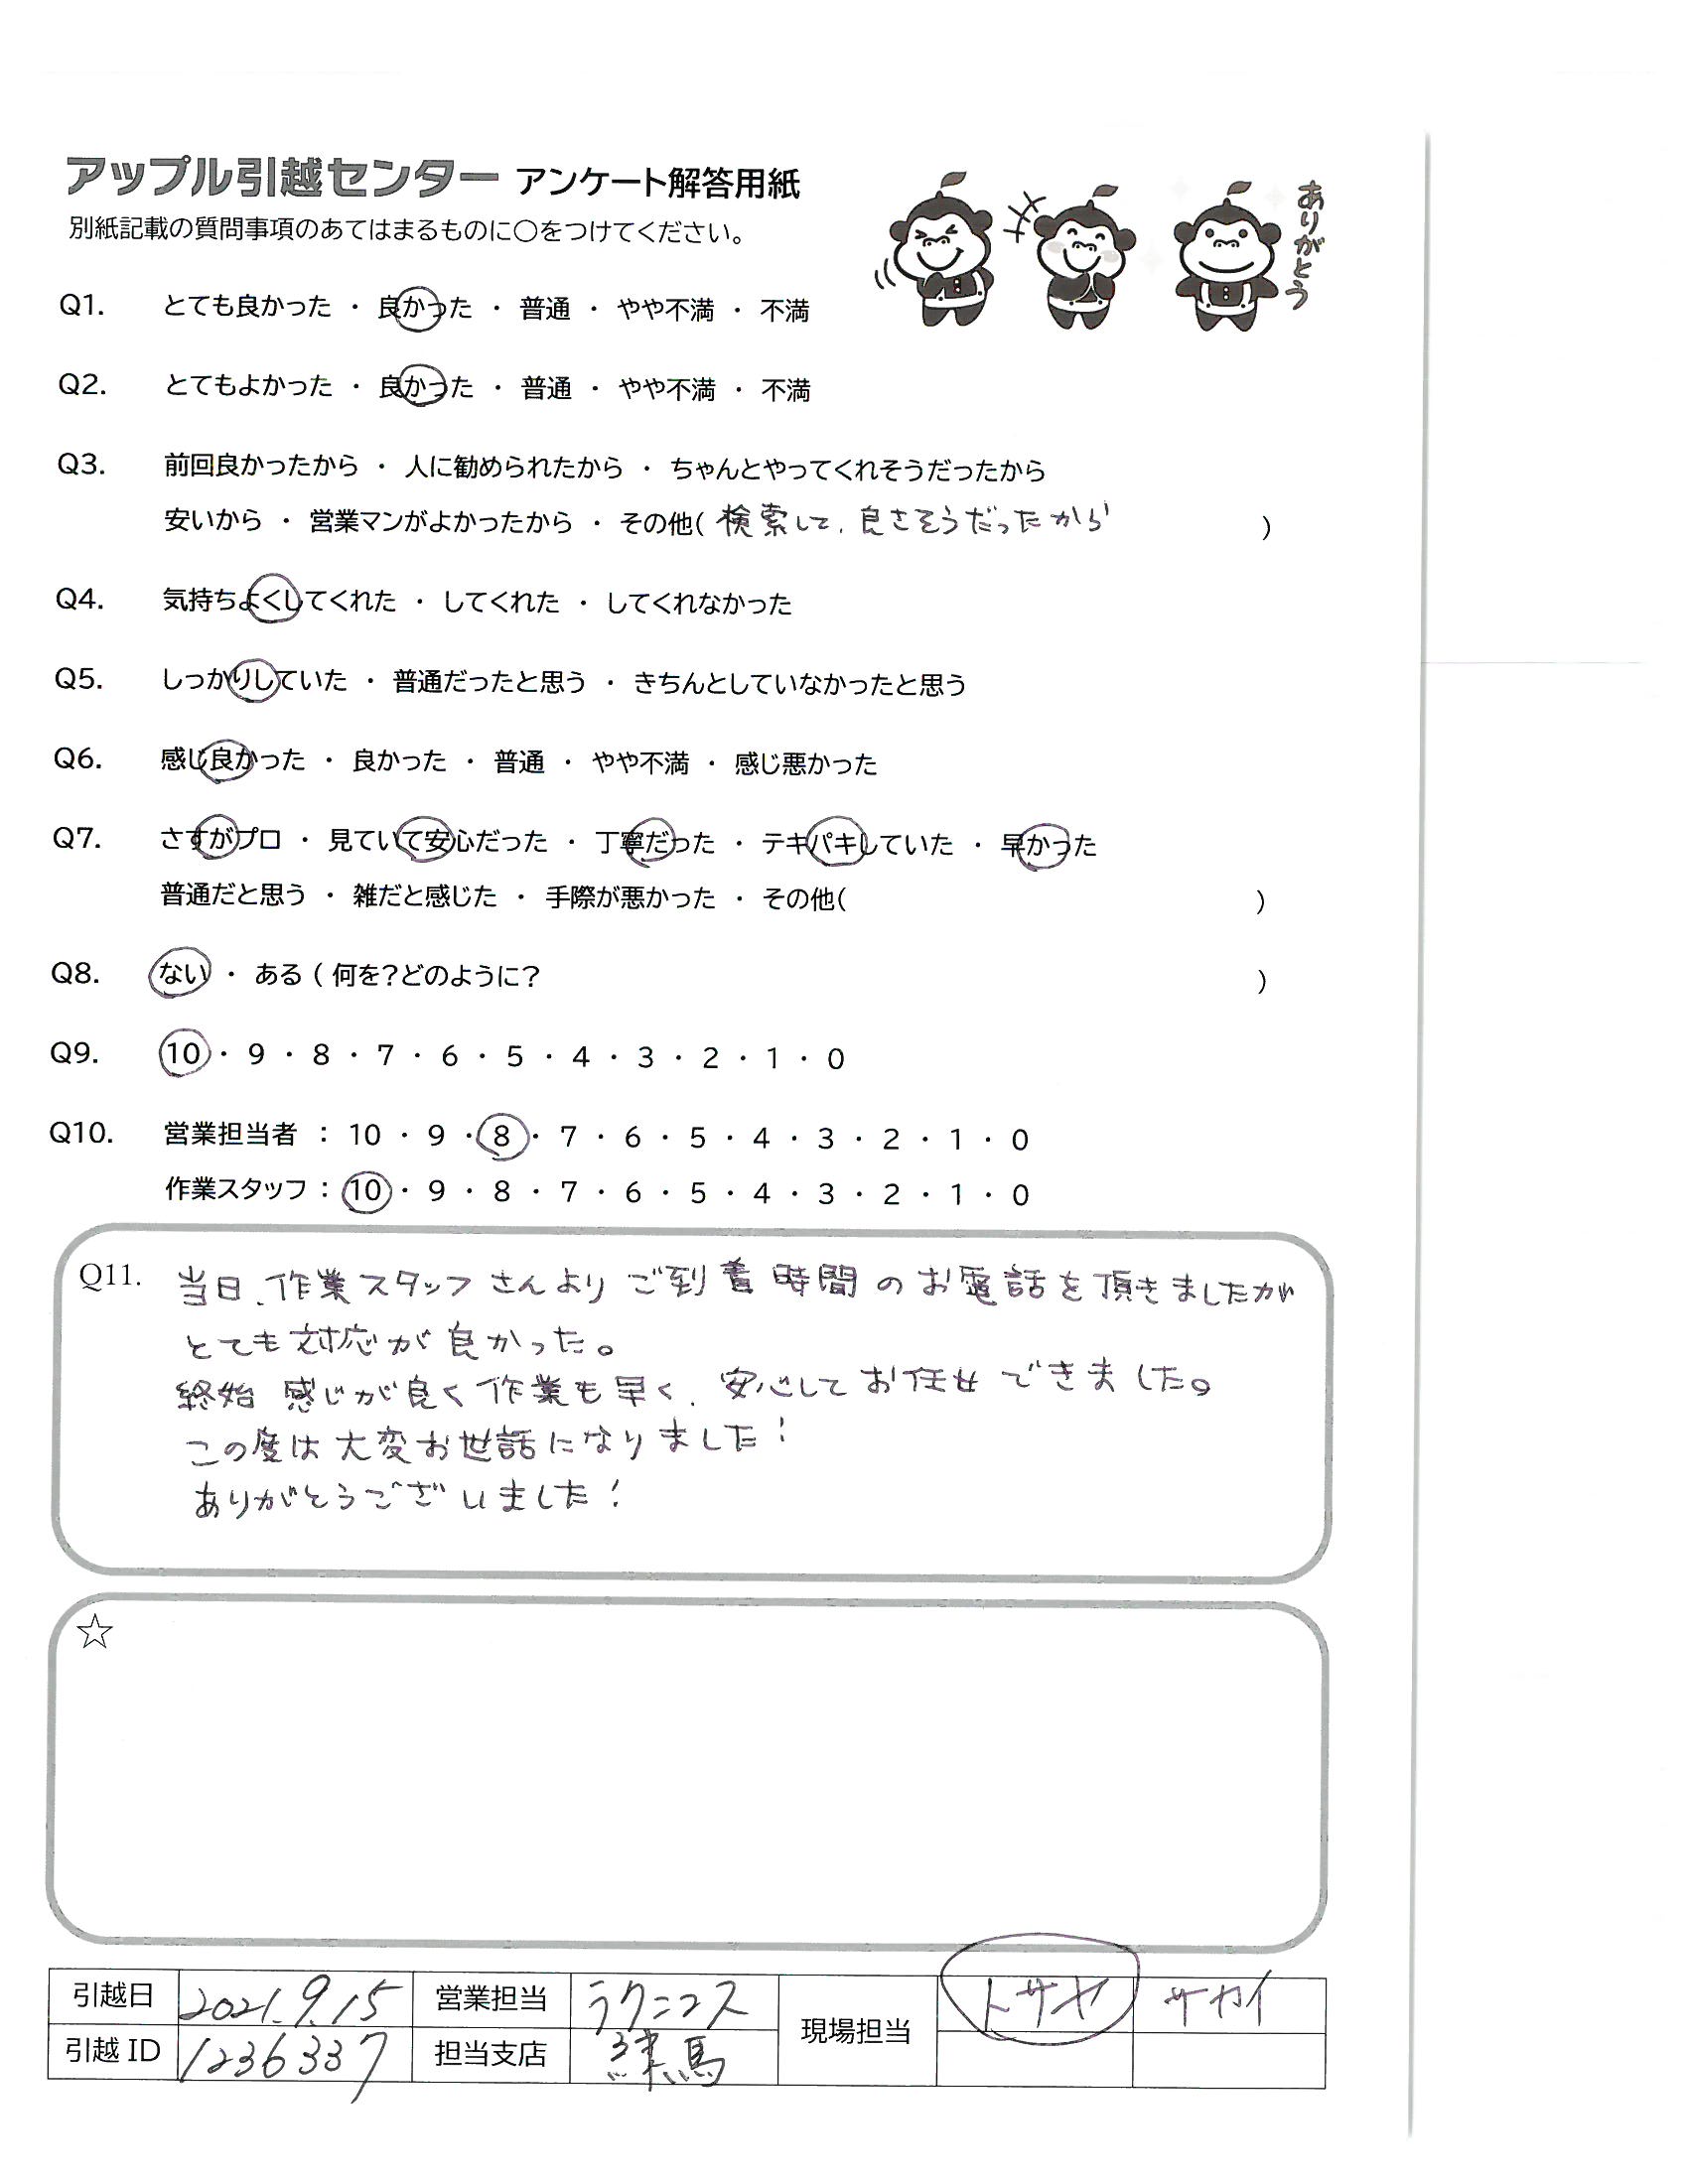 アップル引越センター アンケート解答用紙
別紙記載の質問事項のあてはまるものに○をつけてください。
ありがとう
Q1. とても良かった ・ 良かった ・ 普通 ・ やや不満 ・ 不満
Q2. とてもよかった ・ 良かった ・ 普通 ・ やや不満 ・ 不満
Q3. 前回良かったから ・ 人に勧められたから ・ ちゃんとやってくれそうだったから
安いから ・ 営業マンがよかったから ・ その他( 検索して、良さそうだったから )
Q4. 気持ちよくしてくれた ・ してくれた ・ してくれなかった
Q5. しっかりしていた ・ 普通だったと思う ・ きちんとしていなかったと思う
Q6. 感じ良かった ・ 良かった ・ 普通 ・ やや不満 ・ 感じ悪かった
Q7. さすがプロ ・ 見ていて安心だった ・ 丁寧だった ・ テキパキしていた ・ 早かった
普通だと思う ・ 雑だと感じた ・ 手際が悪かった ・ その他( )
Q8. ない ・ ある ( 何を?どのように? )
Q9. 10 ・ 9 ・ 8 ・ 7 ・ 6 ・ 5 ・ 4 ・ 3 ・ 2 ・ 1 ・ 0
Q10. 営業担当者 : 10 ・ 9 ・ 8 ・ 7 ・ 6 ・ 5 ・ 4 ・ 3 ・ 2 ・ 1 ・ 0
作業スタッフ : 10 ・ 9 ・ 8 ・ 7 ・ 6 ・ 5 ・ 4 ・ 3 ・ 2 ・ 1 ・ 0
Q11. 当日、作業スタッフさんよりご到着時間のお電話を頂きましたが
とても対応が良かった。
終始感じが良く作業も早く、安心してお任せできました。
この度は大変お世話になりました!
ありがとうございました!
☆
引越日 2021.9.15 営業担当 ラクニコス 現場担当 トサヤ サカイ
引越 ID 1236337 担当支店 練馬